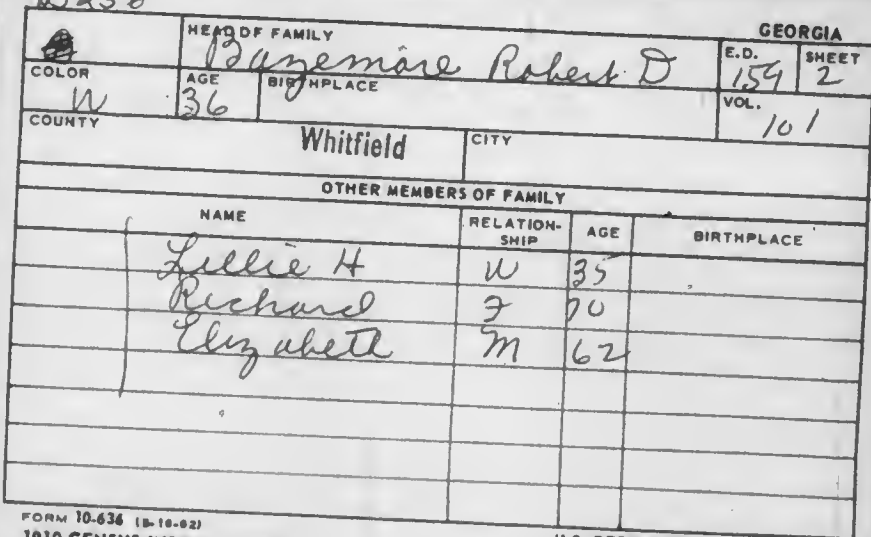 HEAD OF FAMILY
GEORGIA
Bazemore Robert D
E.D.
159
SHEET
2
COLOR
W
AGE
36
BIRTHPLACE
VOL.
101
COUNTY
Whitfield
CITY
OTHER MEMBERS OF FAMILY
NAME
RELATION-
SHIP
AGE
BIRTHPLACE
Lillie H W 35
Richard F 70
Elizabeth M 62
FORM 10-636